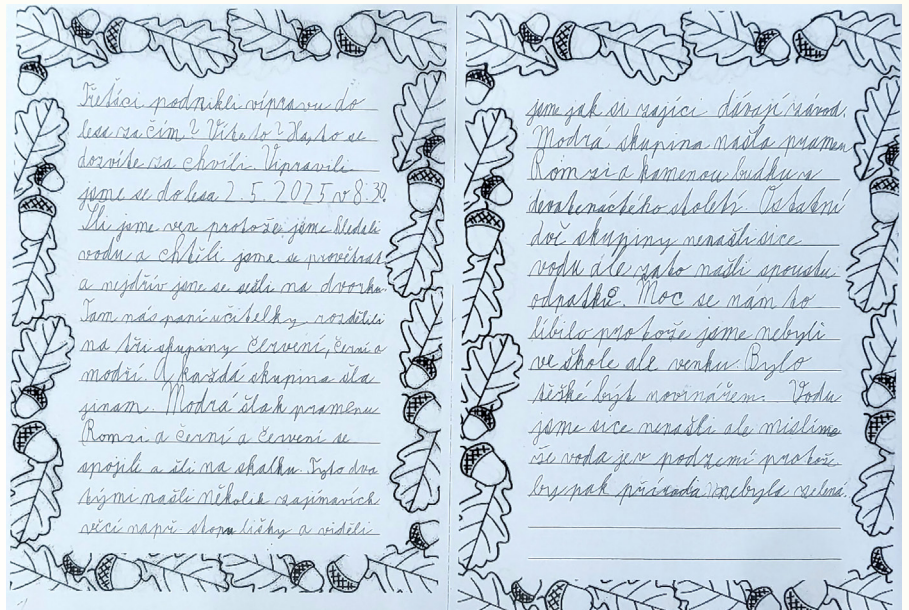 Třeťáci podnikli vípravu do
lesa za čím? Víte to? Ha, to se
dozvíte za chvíli. Vipravili
jsme se do lesa 2.5.2025 v 8:30.
Šli jsme ven protože jsme hledali
vodu a chtěli jsme se provětrat
a nejdřív jsme se sešli na dvorku.
Tam nás paní učitelky rozdělili
na tři skupiny červení, černí a
modří. A každá skupina šla
jinam. Modrá šla k pramenu
Romzi a černí a červení se
spojili a šli na skalku. Tyto dva
tými našli několik zajímavích
věcí např stopu lišky a viděli
jsme jak si zajíci dávají závod.
Modrá skupina našla pramen
Romzi a kamenou budku z
devatenactého století. Ostatní
dvě skupiny nenašli sice
vodu ale zato našli spoustu
odpatků. Moc se nám to
líbilo protože jsme nebyli
ve škole ale venku. Bylo
těžké být novinářem. Vodu
jsme sice nenašli ale mislíme
že voda je v podzemí protože
by pak příroda nebyla zelená.